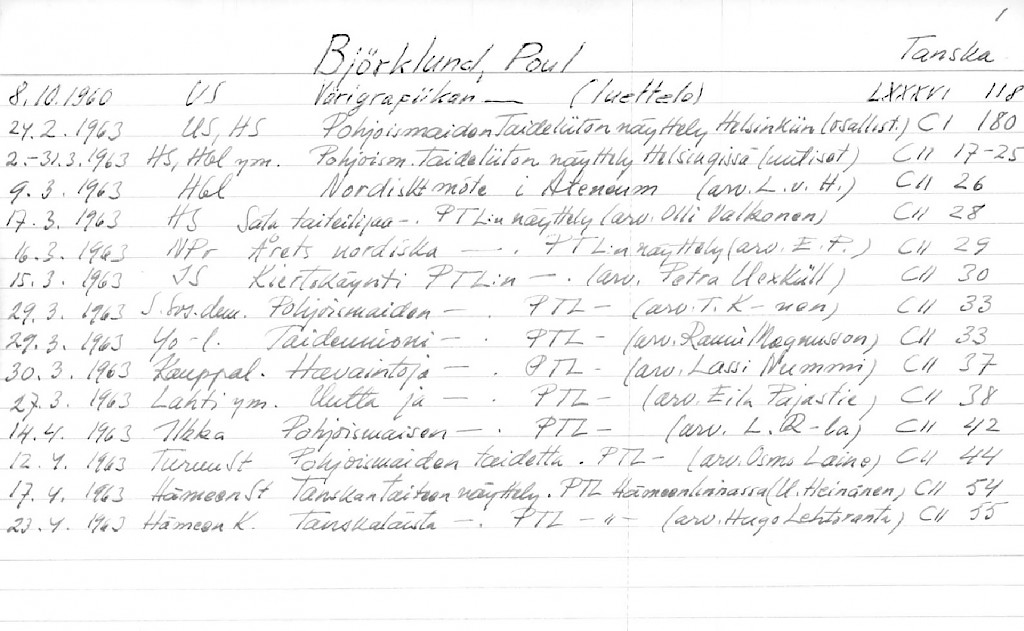 1
Björklund, Poul Tanska
8.10.1960 US Värigrafiikan — (luettelo) LXXXVI 118
24.2.1963 US, HS Pohjoismaiden Taideliiton näyttely Helsinkiin (osallist.) CI 180
2.-31.3.1963 HS, Hbl ym. Pohjoism. Taideliiton näyttely Helsingissä (uutiset) CII 17-25
9.3.1963 Hbl Nordiskt möte i Ateneum (arv. L.v.H.) CII 26
17.3.1963 HS Sata taiteilijaa -. PTL:n näyttely (arv. Olli Valkonen) CII 28
16.3.1963 NPr Årets nordiska —. PTL:n näyttely (arv. E.P.) CII 29
15.3.1963 IS Kiertokäynti PTL:n —. (arv. Petra Uexküll) CII 30
29.3.1963 S.Sos.dem. Pohjoismaiden —. PTL - (arv. T.K-nen) CII 33
29.3.1963 Yo-l. Taideunioni —. PTL - (arv. Rauni Magnusson) CII 33
30.3.1963 Kauppal. Havaintoja —. PTL - (arv. Lassi Nummi) CII 37
27.3.1963 Lahti ym. Uutta ja —. PTL - (arv. Eila Pajastie) CII 38
14.4.1963 Ilkka Pohjoismaisen —. PTL - (arv. L. R-la) CII 42
12.4.1963 TurunSt Pohjoismaiden taidetta. PTL - (arv. Osmo Laine) CII 44
17.4.1963 HämeenSt Tanskan taiteen näyttely. PTL Hämeenlinnassa (U. Heinänen) CII 54
23.4.1963 Hämeen K. Tanskalaista —. PTL - " - (arv. Hugo Lehtoranta) CII 55